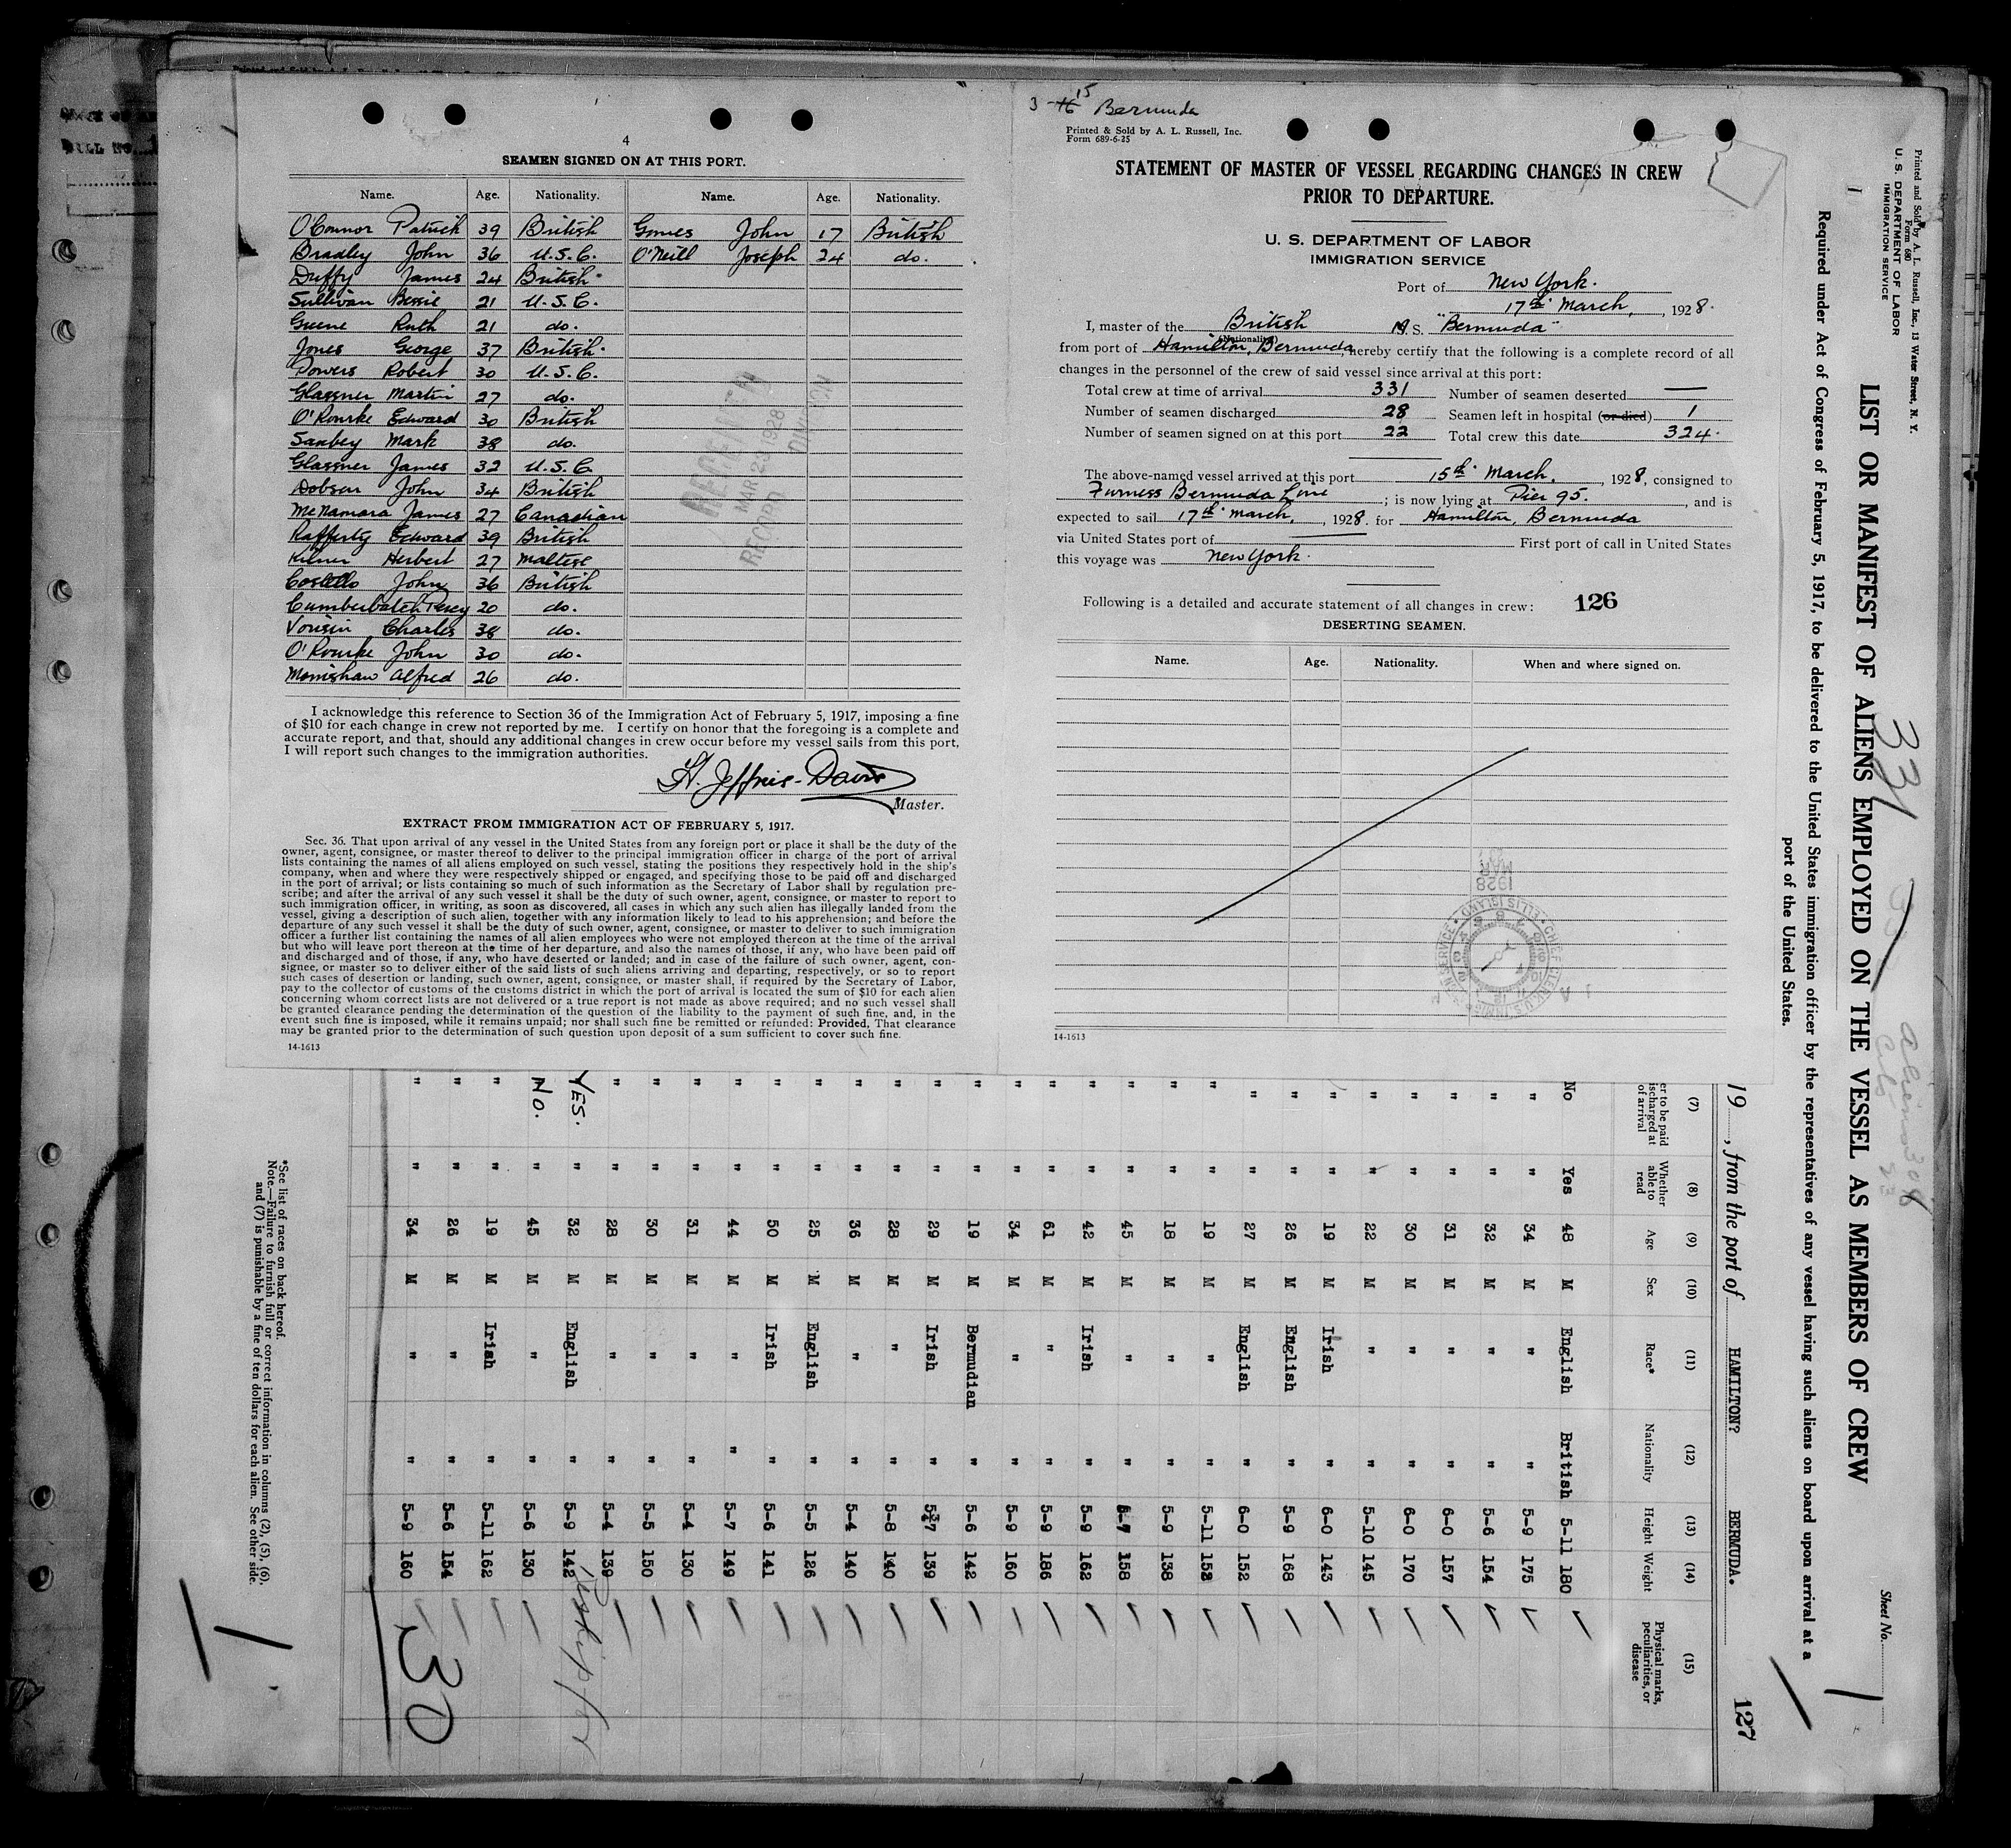 4
SEAMEN SIGNED ON AT THIS PORT.
Name. Age. Nationality. Name. Age. Nationality.
O'Connor Patrick 39 British Gomes John 17 British
Bradley John 36 U.S.C. O'Neill Joseph 24 do.
Duffy James 24 British.
Sullivan Bessie 21 U.S.C.
Greene Ruth 21 do.
Jones George 37 British.
Powers Robert 30 U.S.C.
Glassner Martin 27 do.
O'Rourke Edward 30 British
Saxbey Mark 38 do.
Glassner James 32 U.S.C.
Dobson John 34 British
McNamara James 27 Canadian
Rafferty Edward 39 British
Kilner Herbert 27 Maltese
Costello John 36 British
Cumberbatch Percy 20 do.
Charles 38 do.
O'Rourke John 30 do.
Alfred 26 do.
RECEIVED
MAR 23 1928
RECORD DIVISION
I acknowledge this reference to Section 36 of the Immigration Act of February 5, 1917, imposing a fine
of $10 for each change in crew not reported by me. I certify on honor that the foregoing is a complete and
accurate report, and that, should any additional changes in crew occur before my vessel sails from this port,
I will report such changes to the immigration authorities.
H. Jeffries-Davis
Master.
EXTRACT FROM IMMIGRATION ACT OF FEBRUARY 5, 1917.
Sec. 36. That upon arrival of any vessel in the United States from any foreign port or place it shall be the duty of the
owner, agent, consignee, or master thereof to deliver to the principal immigration officer in charge of the port of arrival
lists containing the names of all aliens employed on such vessel, stating the positions they respectively hold in the ship's
company, when and where they were respectively shipped or engaged, and specifying those to be paid off and discharged
in the port of arrival; or lists containing so much of such information as the Secretary of Labor shall by regulation pre-
scribe; and after the arrival of any such vessel it shall be the duty of such owner, agent, consignee, or master to report to
such immigration officer, in writing, as soon as discovered, all cases in which any such alien has illegally landed from the
vessel, giving a description of such alien, together with any information likely to lead to his apprehension; and before the
departure of any such vessel it shall be the duty of such owner, agent, consignee, or master to deliver to such immigration
officer a further list containing the names of all alien employees who were not employed thereon at the time of the arrival
but who will leave port thereon at the time of her departure, and also the names of those, if any, who have been paid off
and discharged and of those, if any, who have deserted or landed; and in case of the failure of such owner, agent, con-
signee, or master so to deliver either of the said lists of such aliens arriving and departing, respectively, or so to report
such cases of desertion or landing, such owner, agent, consignee, or master shall, if required by the Secretary of Labor,
pay to the collector of customs of the customs district in which the port of arrival is located the sum of $10 for each alien
concerning whom correct lists are not delivered or a true report is not made as above required; and no such vessel shall
be granted clearance pending the determination of the question of the liability to the payment of such fine, and, in the
event such fine is imposed, while it remains unpaid; nor shall such fine be remitted or refunded: Provided, That clearance
may be granted prior to the determination of such question upon deposit of a sum sufficient to cover such fine.
14-1613
3-16 15 Bermuda
Printed & Sold by A. L. Russell, Inc.
Form 689-6-25
STATEMENT OF MASTER OF VESSEL REGARDING CHANGES IN CREW
PRIOR TO DEPARTURE.
U. S. DEPARTMENT OF LABOR
IMMIGRATION SERVICE
Port of New York.
17th March, , 1928.
I, master of the British M.S. "Bermuda"
(Nationality)
from port of Hamilton, Bermuda, hereby certify that the following is a complete record of all
changes in the personnel of the crew of said vessel since arrival at this port:
Total crew at time of arrival 331 Number of seamen deserted —
Number of seamen discharged 28 Seamen left in hospital (or died) 1
Number of seamen signed on at this port 22 Total crew this date 324.
The above-named vessel arrived at this port 15th March, , 1928, consigned to
Furness Bermuda Line ; is now lying at Pier 95. , and is
expected to sail 17th March, , 1928. for Hamilton, Bermuda
via United States port of First port of call in United States
this voyage was New York.
Following is a detailed and accurate statement of all changes in crew: 126
DESERTING SEAMEN.
Name. Age. Nationality. When and where signed on.
MAR
1928
ELLIS ISLAND
14-1613
Printed and Sold by A. L. Russell, Inc., 13 Water Street, N. Y.
Form 680
U. S. DEPARTMENT OF LABOR
IMMIGRATION SERVICE
Sheet No. 1
331
Aliens 308
LIST OR MANIFEST OF ALIENS EMPLOYED ON THE VESSEL AS MEMBERS OF CREW
Required under Act of Congress of February 5, 1917, to be delivered to the United States immigration officer by the representatives of any vessel having such aliens on board upon arrival at a
port of the United States.
19 , from the port of HAMILTON? BERMUDA. 127
(7) (8) (9) (10) (11) (12) (13) (14) (15)
er to be paid
ischarged at
of arrival
Whether
able to
read
Age Sex Race* Nationality Height Weight
Physical marks,
peculiarities, or
disease
No Yes 48 M English British 5-11 180
" " 34 M " " 5-9 175
" " 32 M " " 5-6 154
" " 31 M " " 6-0 157
" " 30 M " " 6-0 170
" " 22 M " " 5-10 145
" " 19 M Irish " 6-0 143
" " 26 M English " 5-9 168
" " 27 M English " 6-0 152
" " 19 M " " 5-11 152
" " 18 M " " 5-9 138
" " 45 M " " 5-7 158
" " 42 M Irish " 5-9 162
" " 61 M " " 5-9 186
" " 34 M " " 5-9 160
" " 19 M Bermudian " 5-6 142
" " 29 M Irish " 5-7 139
" " 28 M " " 5-8 140
" " 36 M " " 5-4 140
" " 25 M English " 5-5 126
" " 50 M Irish " 5-6 141
" " 44 M " " 5-7 149
" " 31 M " " 5-4 130
" " 30 M " " 5-5 150
" " 28 M " " 5-4 139
YES. " 32 M English " 5-9 142
No. " 45 M " " 5-6 130
" " 19 M Irish " 5-11 162
" " 26 M " " 5-6 154
" " 34 M " " 5-9 160
30
*See list of races on back hereof.
Note.—Failure to furnish full or correct information in columns (2), (5), (6),
and (7) is punishable by a fine of ten dollars for each alien. See other side.